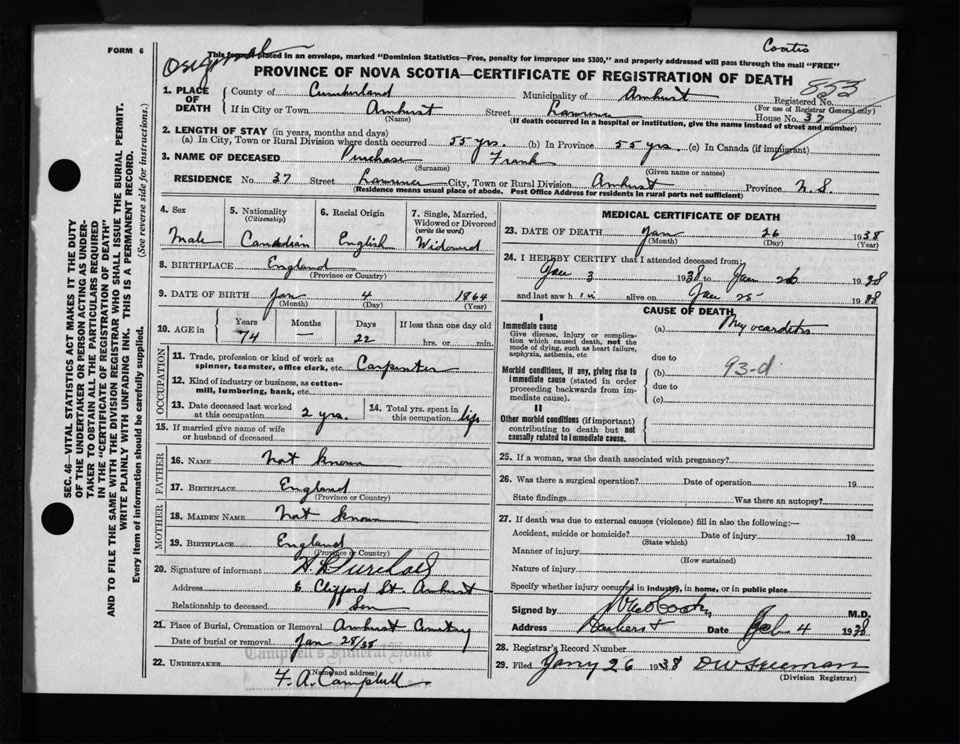 FORM 6
Coats
Original
This form if placed in an envelope, marked "Dominion Statistics—Free, penalty for improper use $300," and properly addressed will pass through the mail "FREE"
PROVINCE OF NOVA SCOTIA—CERTIFICATE OF REGISTRATION OF DEATH
853
1. PLACE OF DEATH County of Cumberland Municipality of Amherst Registered No.
(For use of Registrar General only)
If in City or Town Amherst Street Lawrence House No. 37
(Name) (If death occurred in a hospital or institution, give the name instead of street and number)
2. LENGTH OF STAY (in years, months and days)
(a) In City, Town or Rural Division where death occurred 55 yrs. (b) In Province 55 yrs. (c) In Canada (if immigrant)
3. NAME OF DECEASED Purchase Frank
(Surname) (Given name or names)
RESIDENCE No. 37 Street Lawrence City, Town or Rural Division Amherst Province N.S.
(Residence means usual place of abode. Post Office Address for residents in rural parts not sufficient)
4. Sex Male
5. Nationality (Citizenship) Canadian
6. Racial Origin English
7. Single, Married, Widowed or Divorced (write the word) Widowed
8. BIRTHPLACE England
(Province or Country)
9. DATE OF BIRTH Jan 4 1864
(Month) (Day) (Year)
10. AGE in Years 74 Months — Days 22 If less than one day old hrs. or min.
OCCUPATION
11. Trade, profession or kind of work as spinner, teamster, office clerk, etc. Carpenter
12. Kind of industry or business, as cotton-mill, lumbering, bank, etc.
13. Date deceased last worked at this occupation 2 yrs.
14. Total yrs. spent in this occupation life
15. If married give name of wife or husband of deceased
FATHER
16. NAME Not known
17. BIRTHPLACE England
(Province or Country)
MOTHER
18. MAIDEN NAME Not known
19. BIRTHPLACE England
(Province or Country)
20. Signature of informant Purchase
Address 6 Clifford St. Amherst
Relationship to deceased Son
21. Place of Burial, Cremation or Removal Amherst Cemetery
Date of burial or removal Jan 28/38
Campbell's Funeral Home
22. UNDERTAKER F. A. Campbell
(Name and address)
MEDICAL CERTIFICATE OF DEATH
23. DATE OF DEATH Jan 26 1938
(Month) (Day) (Year)
24. I HEREBY CERTIFY that I attended deceased from:
Jan 3 1938 to Jan 26 1938
and last saw him alive on Jan 25 1938
CAUSE OF DEATH
I
Immediate cause
Give disease, injury or complication which caused death, not the mode of dying, such as heart failure, asphyxia, asthenia, etc
(a) Myocarditis
due to
Morbid conditions, if any, giving rise to immediate cause (stated in order proceeding backwards from immediate cause).
(b) 93-d
due to
(c)
II
Other morbid conditions (if important) contributing to death but not causally related to immediate cause.
25. If a woman, was the death associated with pregnancy?
26. Was there a surgical operation? Date of operation 19
State findings Was there an autopsy?
27. If death was due to external causes (violence) fill in also the following:—
Accident, suicide or homicide? Date of injury 19
(State which)
Manner of injury
(How sustained)
Nature of injury
Specify whether injury occurred in industry, in home, or in public place
Signed by M.D.
Address Date Feb 4 1938
28. Registrar's Record Number
29. Filed Jany 26 1938
(Division Registrar)
SEC. 46—VITAL STATISTICS ACT MAKES IT THE DUTY
OF THE UNDERTAKER OR PERSON ACTING AS UNDER-
TAKER TO OBTAIN ALL THE PARTICULARS REQUIRED
IN THE "CERTIFICATE OF REGISTRATION OF DEATH"
AND TO FILE THE SAME WITH THE DIVISION REGISTRAR WHO SHALL ISSUE THE BURIAL PERMIT.
WRITE PLAINLY WITH UNFADING INK. THIS IS A PERMANENT RECORD.
Every item of information should be carefully supplied. (See reverse side for instructions.)